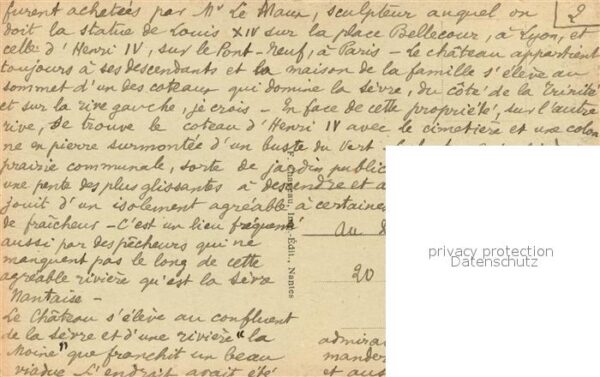 furent achetées par Mr Le Maux, sculpteur auquel on
doit la statue de Louis XIV sur la place Bellecour, à Lyon, et
celle d'Henri IV, sur le Pont-Neuf, à Paris - Le château appartient
toujours à ses descendants et la maison de la famille s'élève au
sommet d'un des coteaux qui domine la Sèvre, du côté de la Trinité
et sur la rive gauche, je crois - En face de cette propriété, sur l'autre
rive, se trouve le coteau d'Henri IV avec le cimetière et une colon
ne en pierre surmontée d'un buste du Vert -
prairie communale, sorte de jardin public
une pente des plus glissantes à descendre et a
jouit d'un isolement agréable à certaines
de fraîcheur - C'est un lieu fréquenté
aussi par des pêcheurs qui ne
manquent pas le long de cette
agréable rivière qu'est la Sèvre
Nantaise -
Le Château s'élève au confluent
de la Sèvre et d'une rivière "la
Moine" que franchit un beau
viaduc - L'endroit avait été
2
F. Chateau, Imp. Édit., Nantes
au
20
admira
mander
et aus
privacy protection
Datenschutz